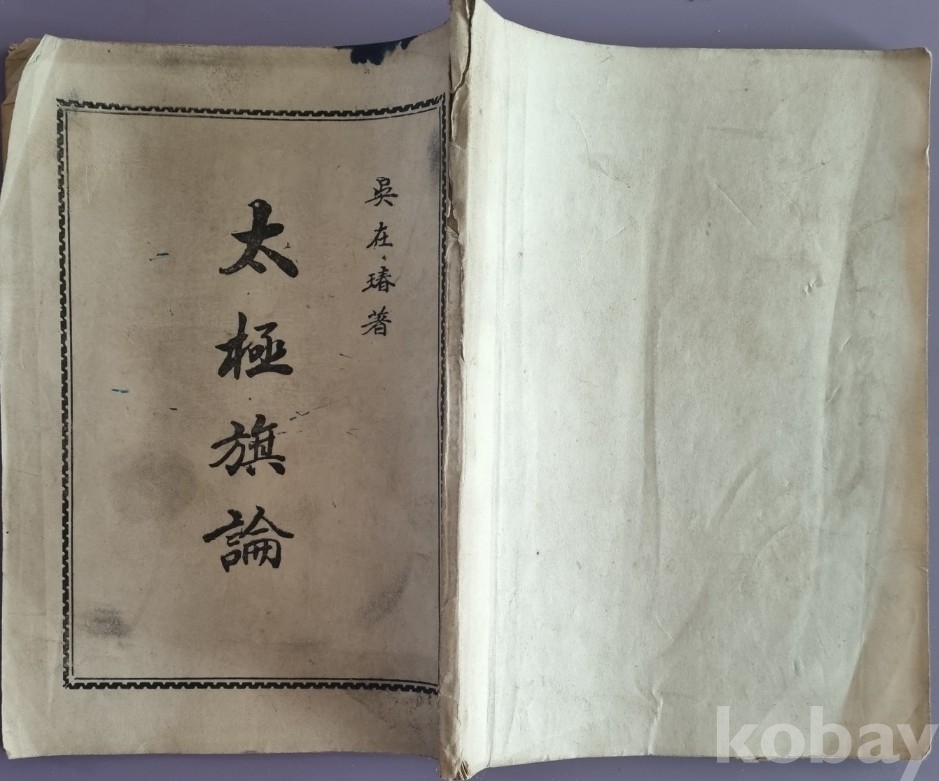 吳在瑃著
太極旗論
kobay